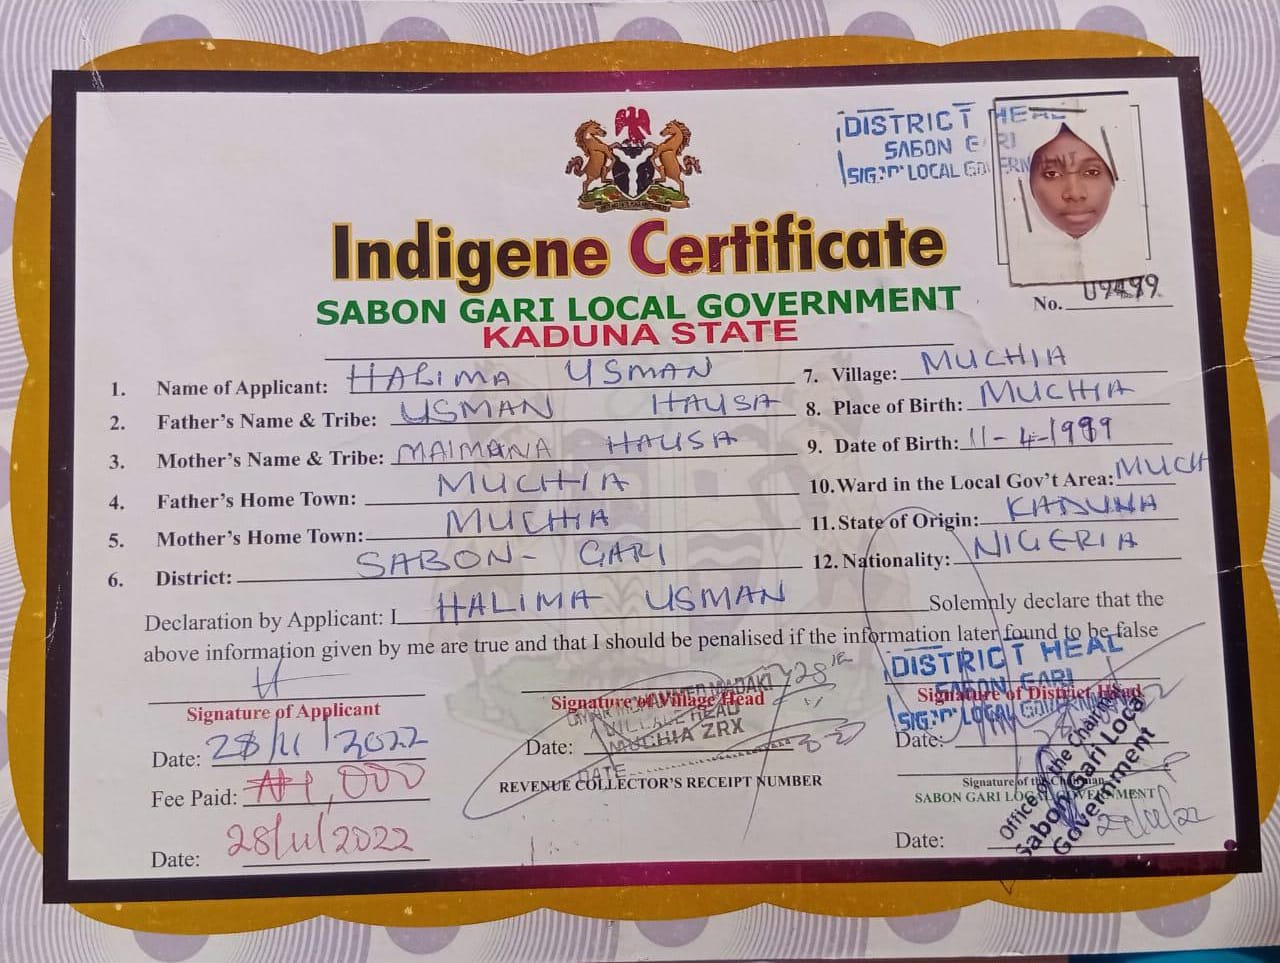 DISTRICT HEAL
SABON GARI
SIG:"" LOCAL GOVERNMENT
Indigene Certificate
SABON GARI LOCAL GOVERNMENT
KADUNA STATE
No.
1. Name of Applicant: HALIMA USMAN
2. Father's Name & Tribe: USMAN HAUSA
3. Mother's Name & Tribe: MAIMANA HAUSA
4. Father's Home Town: MUCHIA
5. Mother's Home Town: MUCHIA
6. District: SABON-GARI
7. Village: MUCHIA
8. Place of Birth: MUCHIA
9. Date of Birth: 11-4-1999
10. Ward in the Local Gov't Area: MUCH
11. State of Origin: KADUNA
12. Nationality: NIGERIA
Declaration by Applicant: I HALIMA USMAN Solemnly declare that the
above information given by me are true and that I should be penalised if the information later found to be false
Signature of Applicant
Date: 28/11/2022
Fee Paid: ₦1,000
Date: 28/11/2022
Signature of Village Head
VILLAGE HEAD
MUCHIA ZRX
Date:
DATE
REVENUE COLLECTOR'S RECEIPT NUMBER
DISTRICT HEAL
SABON GARI
LOCAL GOVERNMENT
Signature of District Head
Date:
Signature of the Chairman
SABON GARI LOCAL GOVERNMENT
Office of the Chairman
Sabon Gari Local
Government
Date: